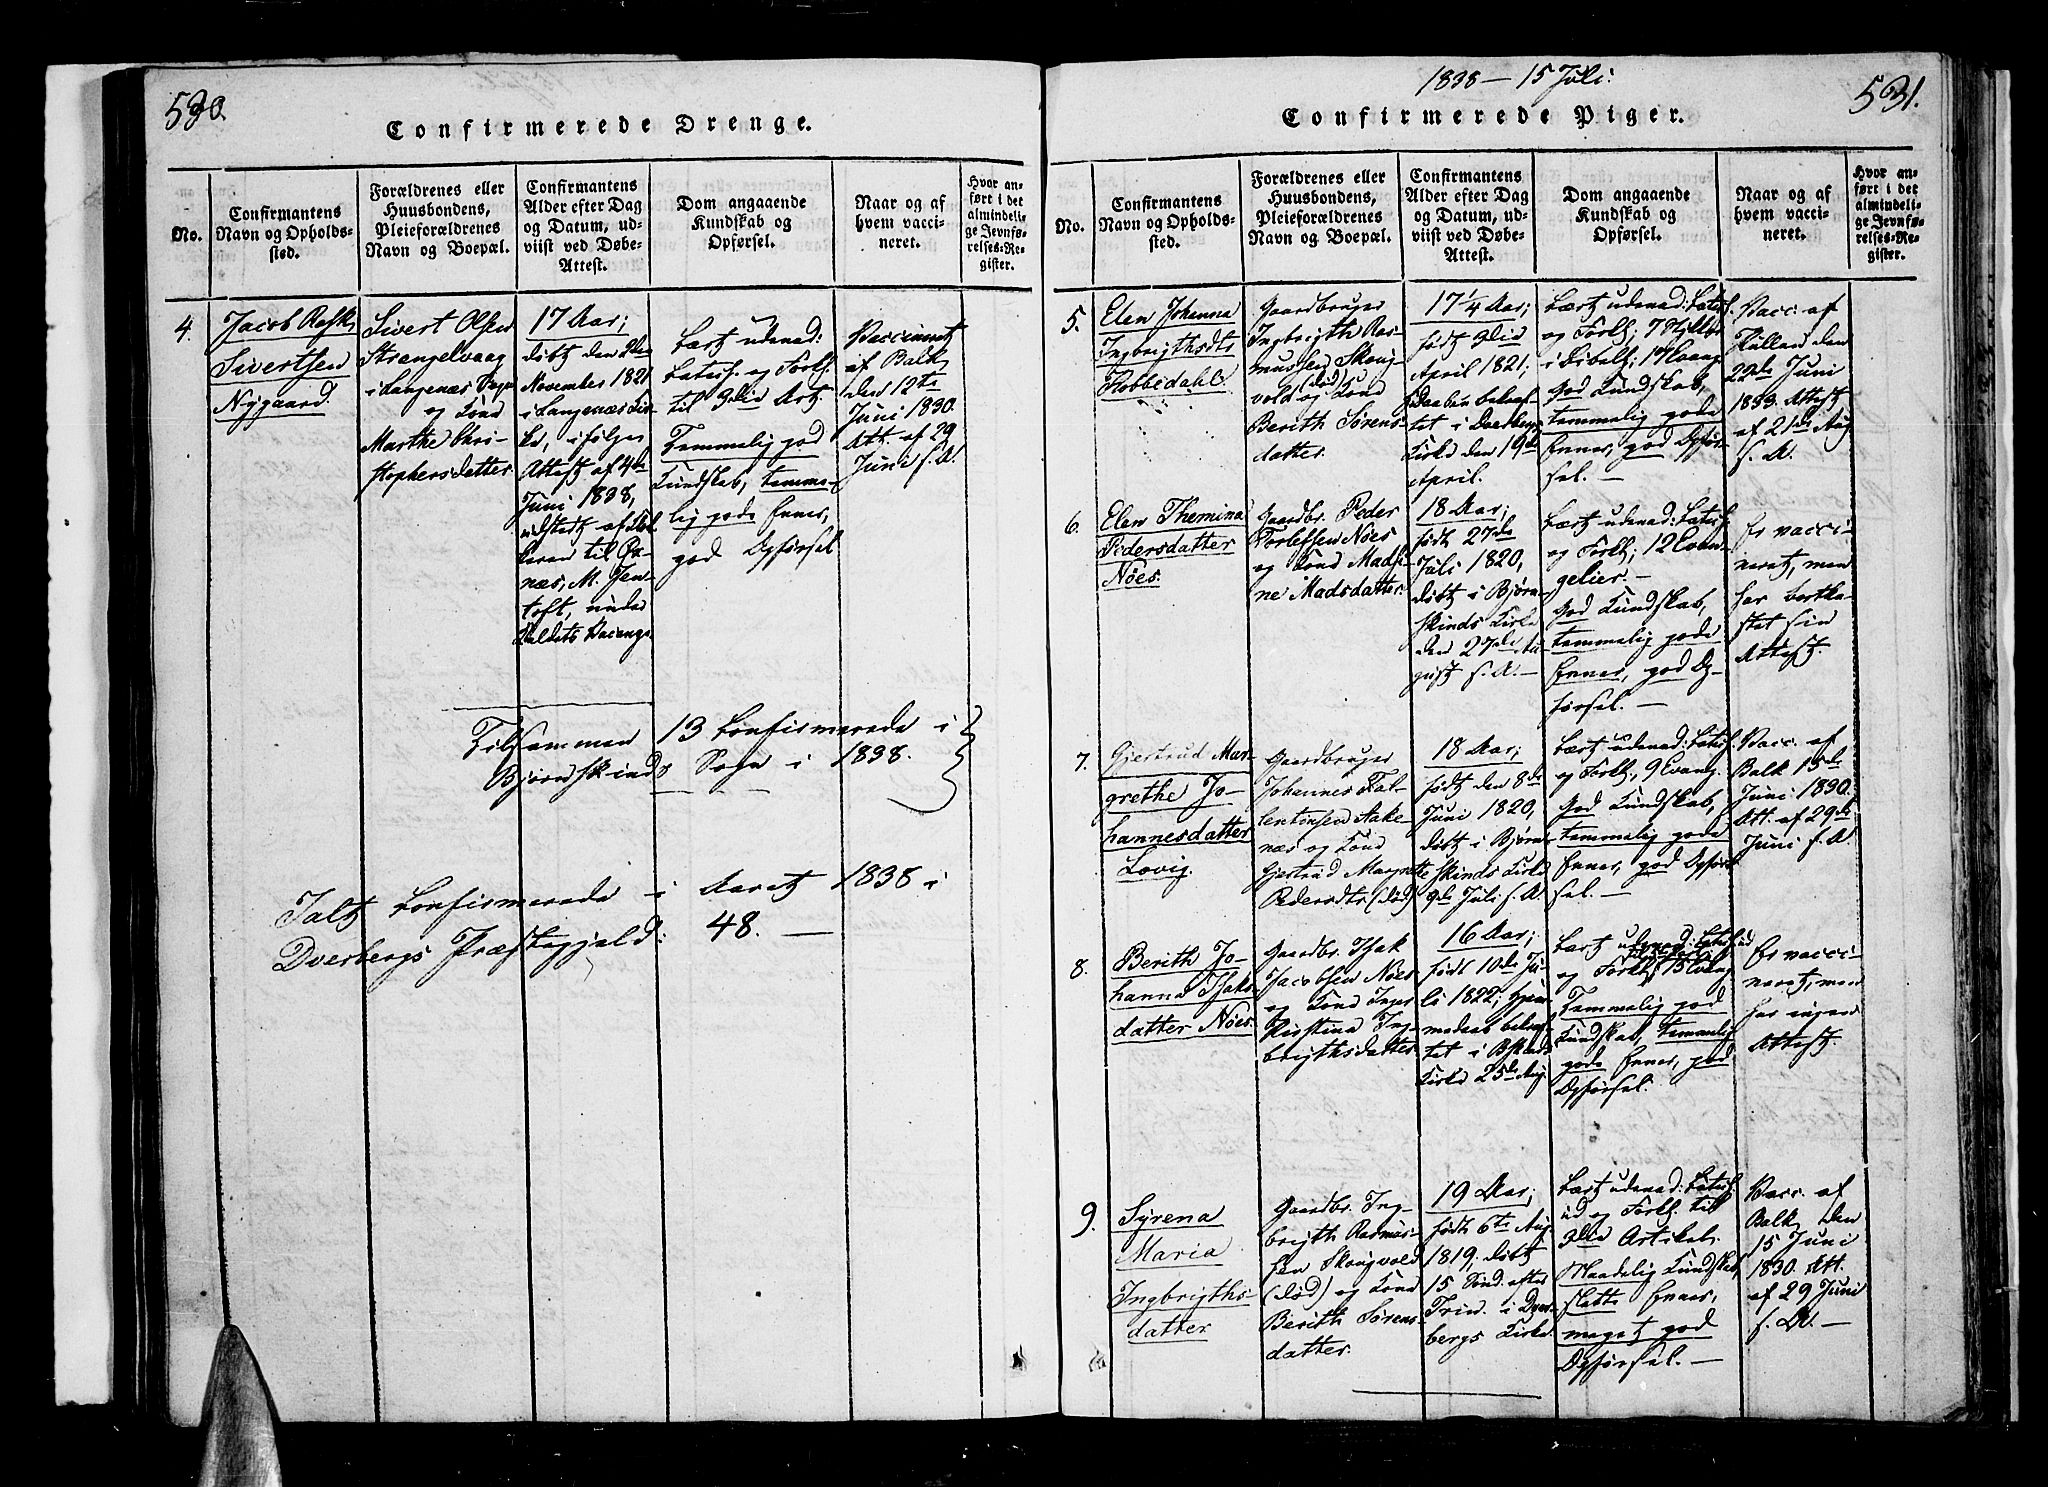 530.
Confirmerede Drenge.
No.
Confirmantens
Navn og Opholds-
sted.
Forældrenes eller
Huusbondens,
Pleieforældrenes
Navn og Boepæl.
Confirmantens
Alder efter Dag
og Datum, ud-
viist ved Døbe-
Attest.
Dom angaaende
Kundskab og
Opførsel.
Naar og af
hvem vacci-
neret.
Hvor an-
ført i det
almindeli-
ge Jevnfø-
relses-Re-
gister.
4.
Jacob
Sivertsen
Nygaard.
Sivert Olsen
Strengelvaag
i Langenæs
og Kone
Marthe Chri-
stophersdatter
17 Aar;
døbt den 2den
November 1821
i Langenæs Kir-
ke, ifølge
Attest af 4de
Juni 1838,
udstedt af
til Ox-
næs, M. Jen-
toft, under
Kaldets Vacance.
Lært udenad:
Catech. og Forkl.
til 9die Art.
Temmelig god
Kundskab, temme-
lig gode Evner,
god Opførsel
Vaccineret
af Balk
den 12te
Juni 1830.
Att. af 29
Juni s. A.
Tilsammen 13 Confirmerede i
Bjørnskinds Sogn i 1838.
I alt Confirmerede i Aaret 1838 i
Dverbergs Præstegjeld: 48. —
1838 — 15 Juli.
531.
Confirmerede Piger.
No.
Confirmantens
Navn og Opholds-
sted.
Forældrenes eller
Huusbondens,
Pleieforældrenes
Navn og Boepæl.
Confirmantens
Alder efter Dag
og Datum, ud-
viist ved Døbe-
Attest.
Dom angaaende
Kundskab og
Opførsel.
Naar og af
hvem vacci-
neret.
Hvor an-
ført i det
almindeli-
ge Jevnfø-
relses-Re-
gister.
5.
Elen Johanna
Ingbrigthsdtr
Robbedahl.
Gaardbruger
Ingbrigth Ras-
mussen Skoug-
vold (død) og Kone
Berith Sørens-
datter.
17 1/4 Aar;
født 9die
April 1821;
Daaben bekræf-
tet i Dverbergs
Kirke den 19de
April.
Lært udenad: Catech.
og Forkl; 7 Stykker
i Bibelh; 17 Evang.
God Kundskab,
temmelig gode
Evner, god Opfør-
sel. —
Vacc. af
den
22de Juni
1833. Attest
af 21de Aug
s. A.
6.
Elen Themina
Pedersdatter
Nöes.
Gaardbr. Peder
Torlefsen Nöes
og Kone Madsi-
ne Madsdatter.
18 Aar;
født 27de
Juli 1820,
døbt i Bjørn-
skinds Kirke
den 27de Au-
gust s. A. —
Lært udenad: Catech.
og Forkl; 12 Evan-
gelier. —
God Kundskab,
temmelig gode
Evner, god Op-
førsel. —
Er vacci-
neret, men
har bortka-
stet sin
Attest.
7.
Gjertrud Mar-
grethe Jo-
hannesdatter
Lovig.
Gaardbruger
Johannes Fal-
lentinsen Aake-
næs og Kone
Gjertrud Margrethe
Pedersdtr (død)
18 Aar;
født den 8de
Juni 1820,
døbt i Bjørn-
skinds Kirke
9de Juli s. A.
Lært udenad: Catech.
og Forkl, 9 Evang.
God Kundskab,
temmelig gode
Evner, god Opfør-
sel. —
Vacc. af
Balk 15de
Juni 1830.
Att. af 29de
Juni s. A.
8.
Berith Jo-
hanna Isaks-
datter Nöes.
Gaardbr. Isak
Jacobsen Nöes
og Kone Inger
Kirstina Ing-
brigthsdatter.
16 Aar;
født 10de Ju-
li 1822; Hjem-
medaab bekræf-
tet i Bskinds
Kirke 25de Aug.
Lært udenad: Catech.
og Forkl, 15 Evang
Temmelig god
Kundskab, temmelig
gode Evner, god
Opførsel.
Er vacci-
neret, men
har ingen
Attest.
9.
Syrena
Maria
Ingbrigths-
datter
Gaardbr. Ing-
brigth Rasmus-
sen Skougvold
(død) og Kone
Berith Sørens-
datter.
19 Aar;
født 6te Aug
1819, døbt
15 Sønd. efter
Trin. i Dver-
bergs Kirke.
Lært udenad: Catech.
og Forkl. til
3die Artikel.
Maadelig Kundskab,
slette Evner,
meget god
Opførsel. —
Vacc. af
Balk den
15 Juni
1830. Att.
af 29 Juni
s. A. —